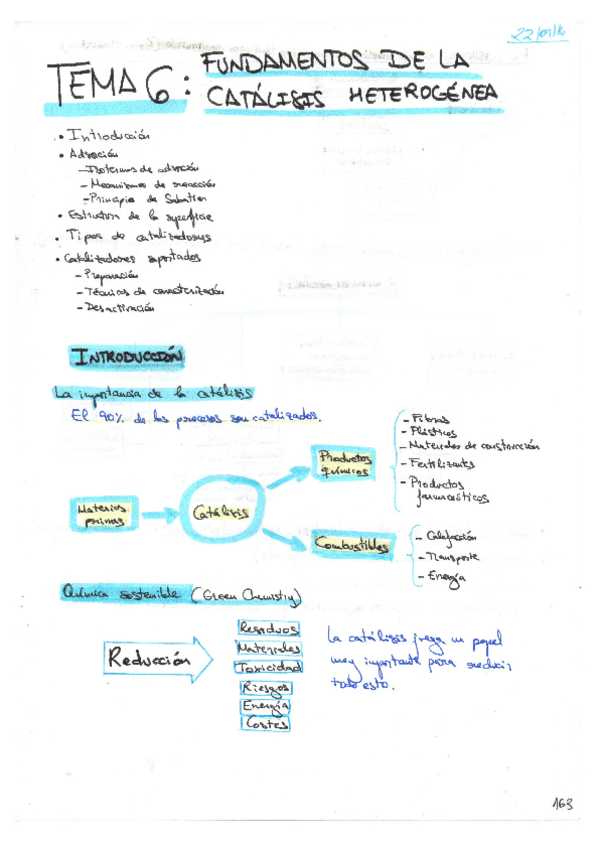 TEMA 6: FUNDAMENTOS DE LA
CATÁLISIS HETEROGÉNEA
• Introducción
• Adsorción
- Isotermas de adsorción
- Mecanismos de reacción
- Principio de Sabatier
• Estructura de la superficie
• Tipos de catalizadores
• Catalizadores soportados
- Preparación
- Técnicas de caracterización
- Desactivación
INTRODUCCIÓN
La importancia de la catálisis
El 90% de los procesos son catalizados.
Materias
primas
Catálisis
Productos
químicos
- Fibras
- Plásticos
- Materiales de construcción
- Fertilizantes
- Productos
farmacéuticos
Combustibles
- Calefacción
- Transporte
- Energía
Química sostenible (Green Chemistry)
Reducción
Residuos
Materiales
Toxicidad
Riesgos
Energía
Costes
La catálisis juega un papel
muy importante para reducir
todo esto.
163